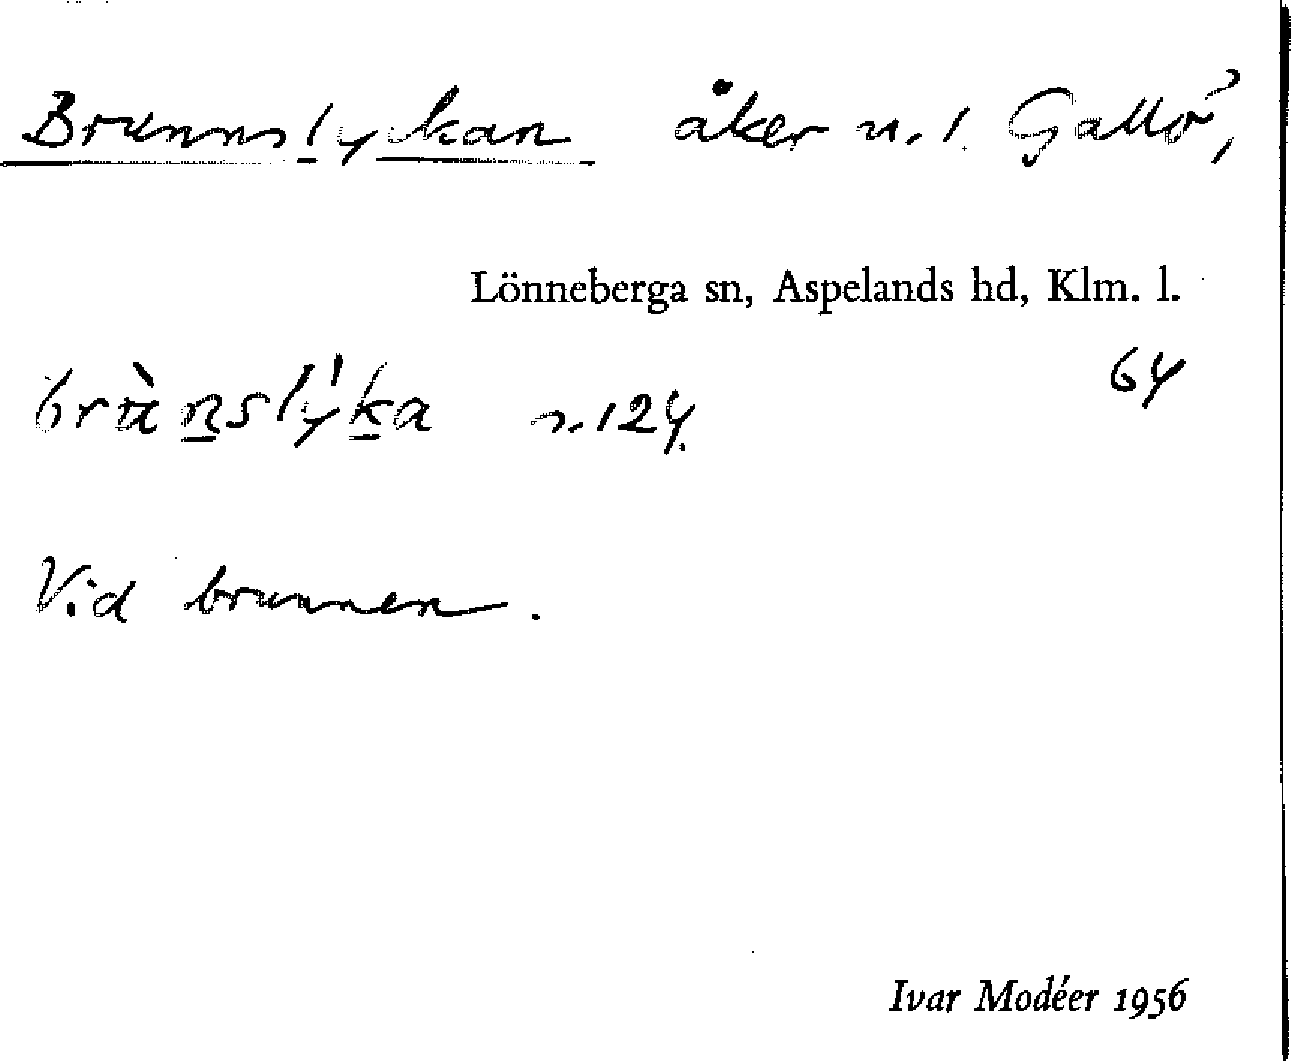 Brunnslyckan åker u. l. Gallö,
Lönneberga sn, Aspelands hd, Klm. l.
64
brùn̲slýk̲a n. 124.
Vid brunnen.
Ivar Modéer 1956